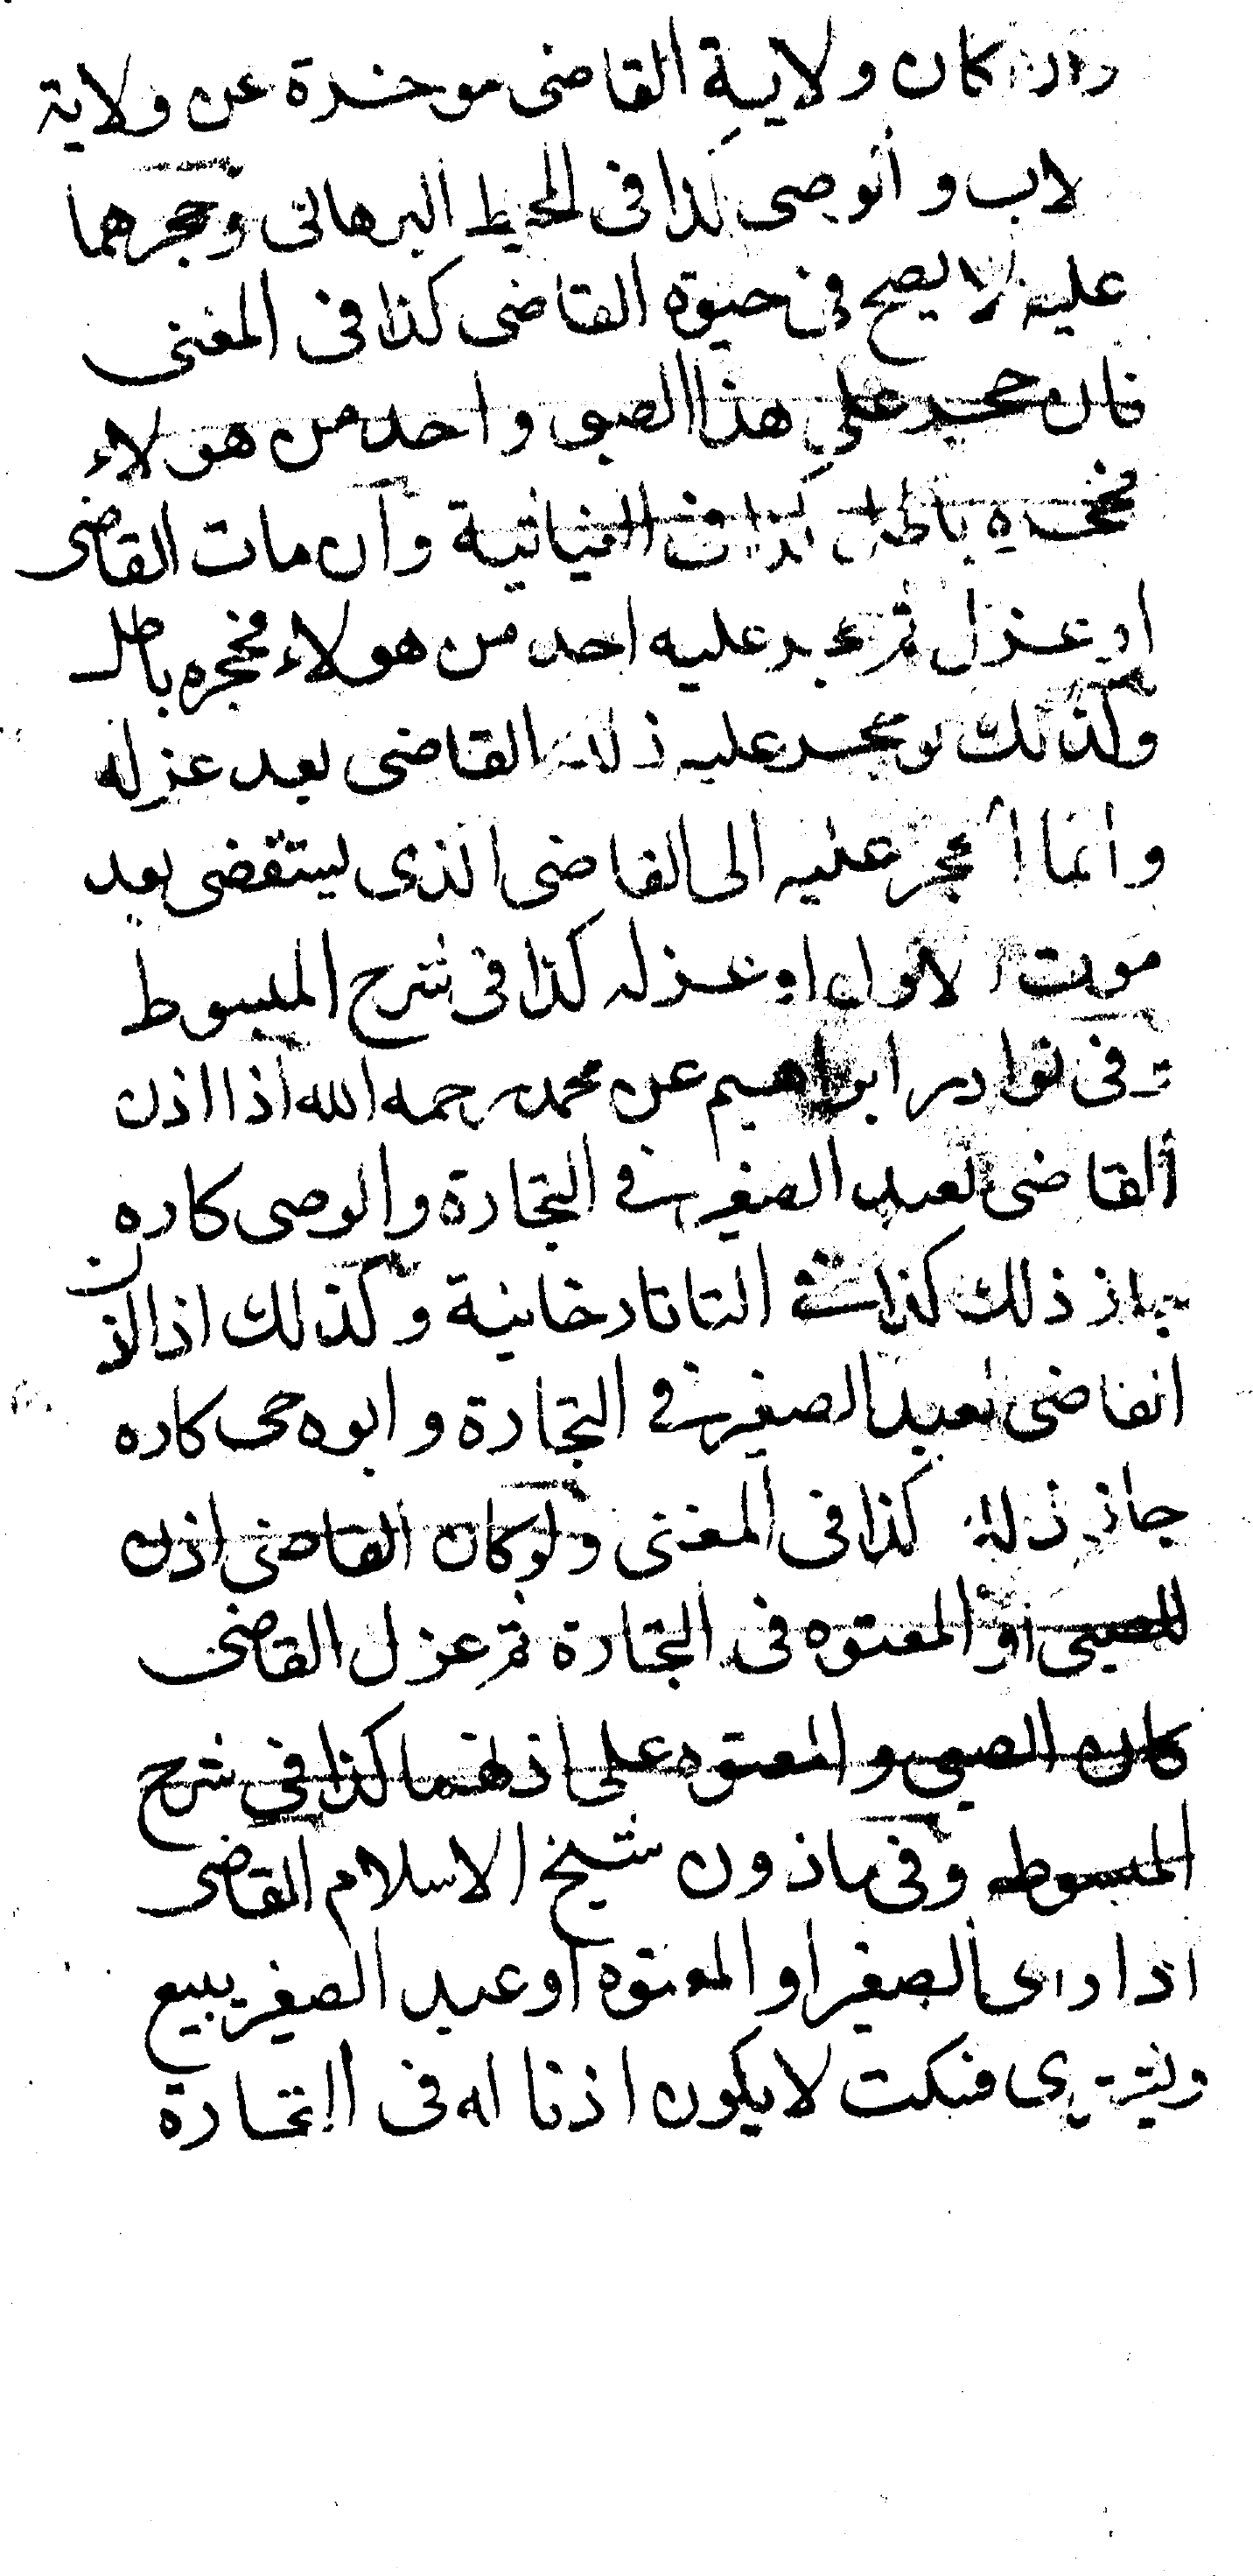 وان كان ولاية القاضى موخرة عن ولاية
لاب والوصى كذا فى المحيط البرهانى وحجرهما
عليه لا يصح فى حيوة القاضى كذا فى المغنى
فان حجر على هذا الصبى واحد من هولاء
فحجره باطل كذا فى الغياثية وان مات القاضى
او عزل ثم حجر عليه احد من هولاء فحجره باطل
وكذلك لو حجر عليه ذلك القاضى بعد عزله
وانما الحجر عليه الى القاضى الذى يستقضى بعد
موت الاول او عزله كذا فى شرح المبسوط
وفى نوادر ابراهيم عن محمد رحمه الله اذا اذن
القاضى لعبد الصغير فى التجارة والوصى كاره
جاز ذلك كذا فى التاتارخانية وكذلك اذا اذن
القاضى لعبد الصغير فى التجارة وابوه حى كاره
جاز ذلك كذا فى المغنى ولو كان القاضى اذن
للصبى او المعتوه فى التجارة ثم عزل القاضى
كان الصبى والمعتوه على اذنهما كذا فى شرح
المبسوط وفى ماذون شيخ الاسلام القاضى
اذا راى الصغير او المعتوه او عبد الصغير يبيع
ويشترى فسكت لا يكون اذنا له فى التجارة